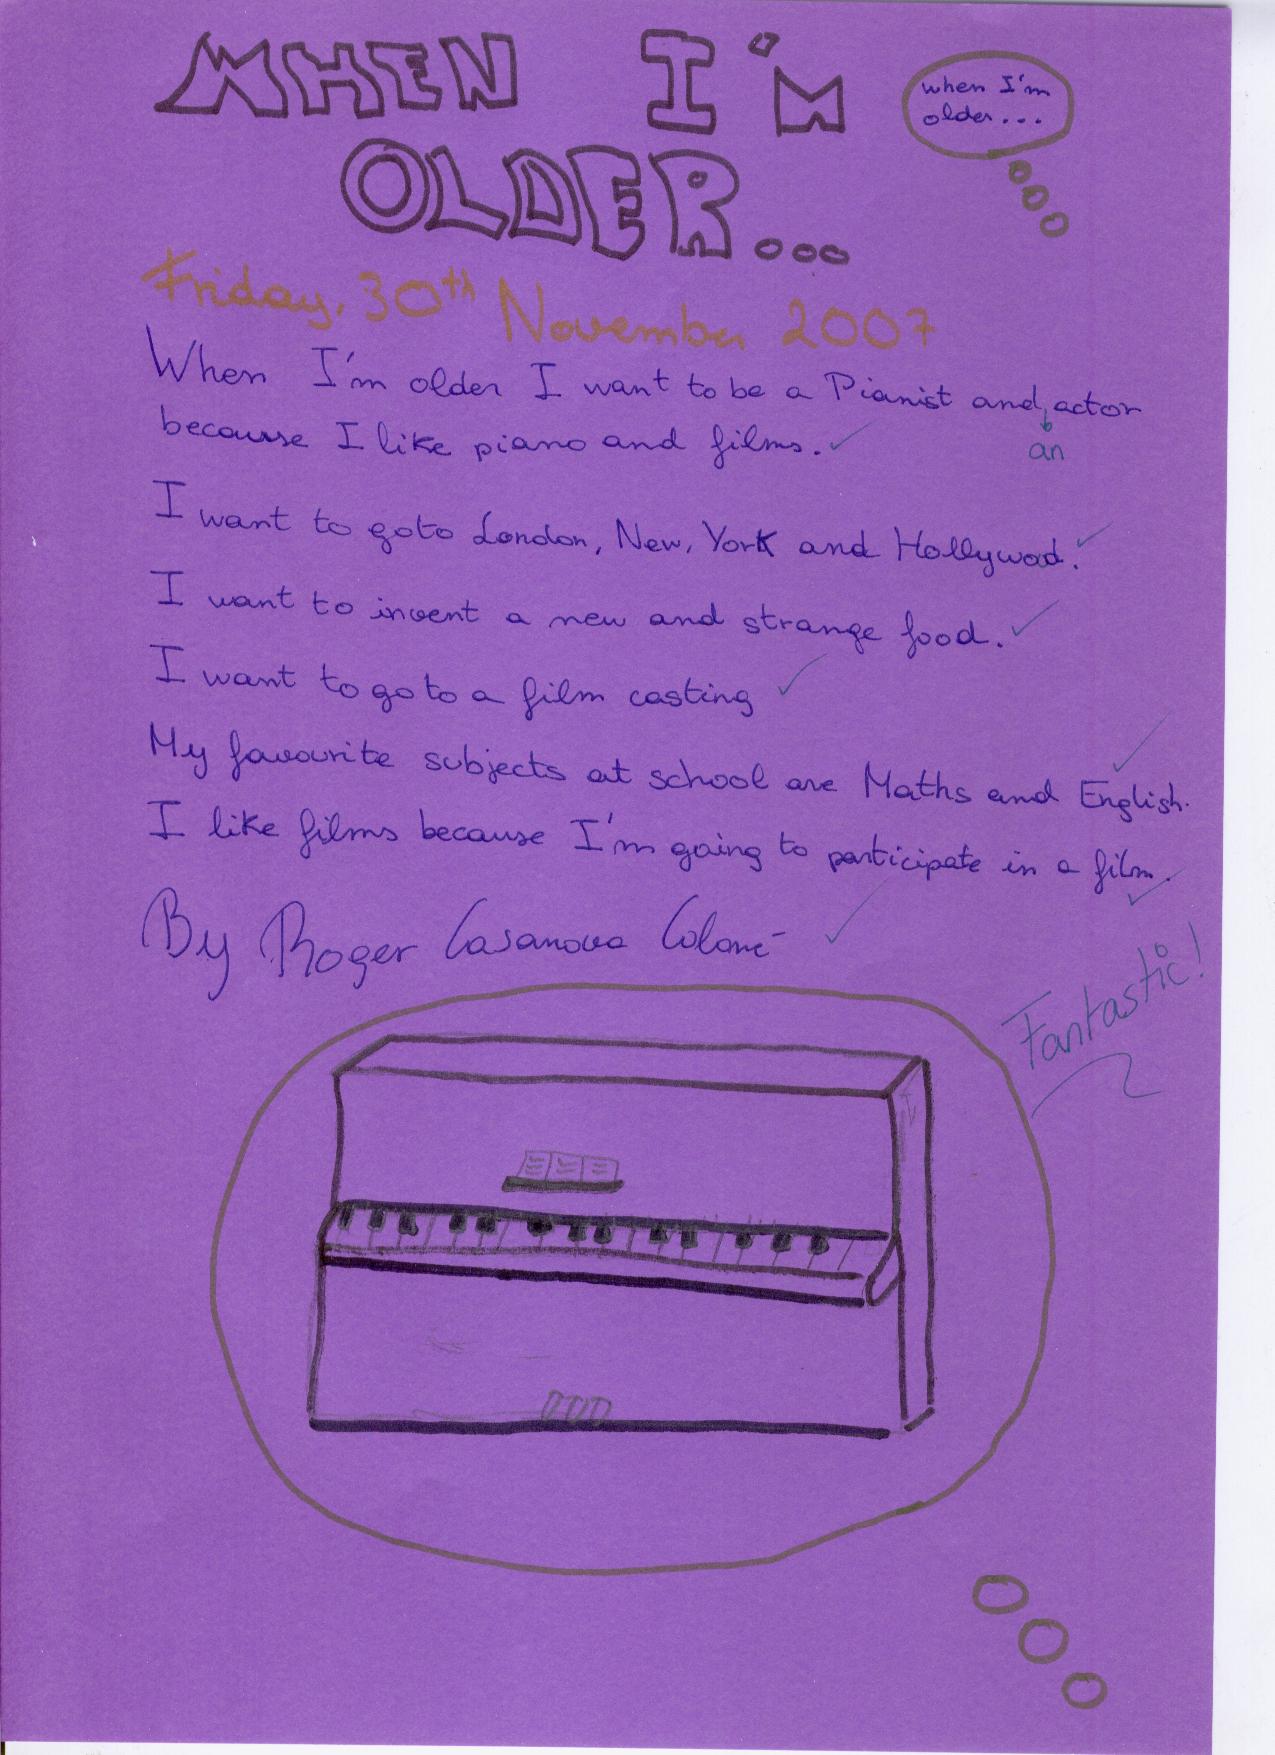 WHEN I'M
OLDER...
when I'm
older...
Friday, 30th November 2007
When I'm older I want to be a Pianist and actor
an
becourse I like piano and films.
I want to go to London, New, York and Hollywod.
I want to invent a new and strange food.
I want to go to a film casting
My favourite subjects at school are Maths and English.
I like films because I'm going to participate in a film.
By Roger Casanova
Fantastic!